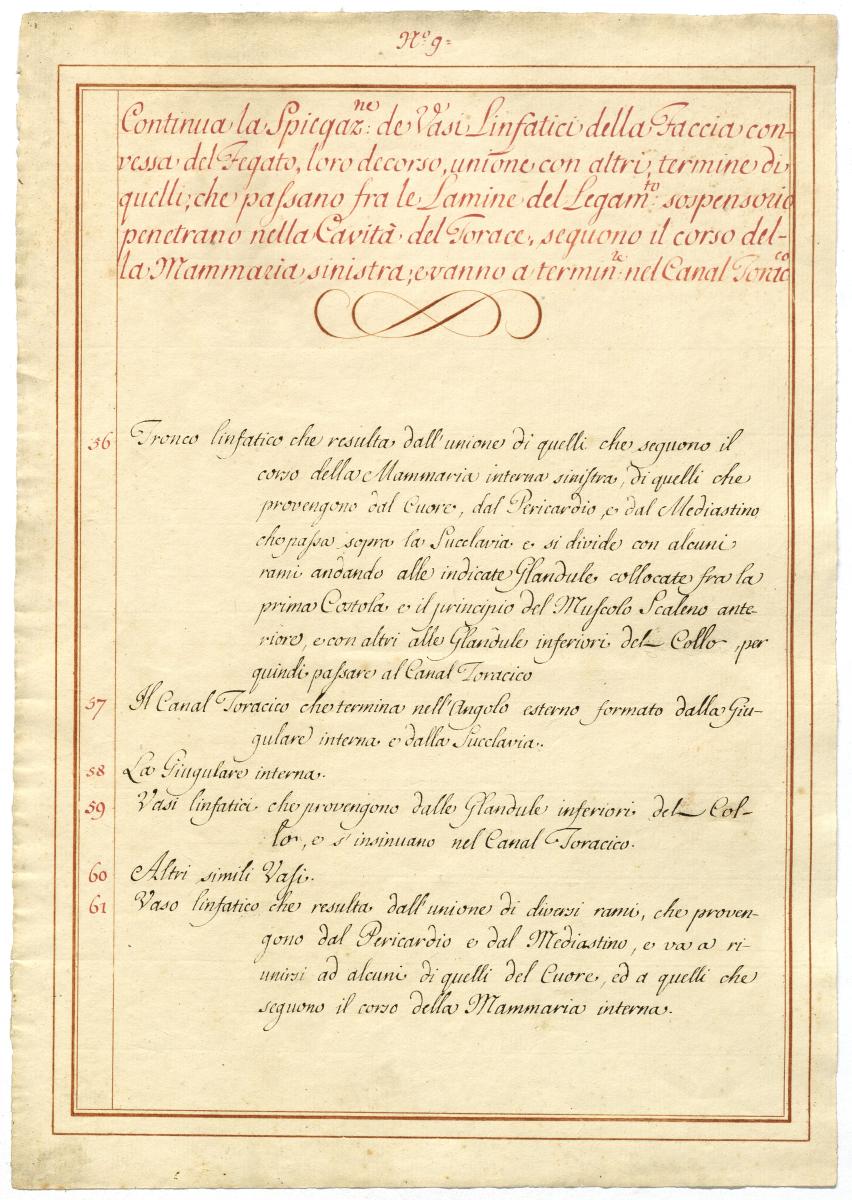 N.º 9=
Continua la Spiegaz.ne de Vasi Linfatici della Faccia con-
vessa del Fegato, loro decorso, unione con altri, termine di
quelli, che passano fra le Lamine del Legam.to sospensorio
penetrano nella Cavità del Torace, seguono il corso del-
la Mammaria sinistra, e vanno a termin.re nel Canal Torac.co
56 Tronco linfatico che resulta dall'unione di quelli che seguono il
corso della Mammaria interna sinistra, di quelli che
provengono dal Cuore, dal Pericardio, e dal Mediastino
che passa sopra la Succlavia e si divide con alcuni
rami andando alle indicate Glandule collocate fra la
prima Costola e il principio del Muscolo Scaleno ante-
riore, e con altri alle Glandule inferiori del Collo, per
quindi passare al Canal Toracico
57 Il Canal Toracico che termina nell'Angolo esterno formato dalla Giu-
gulare interna e dalla Succlavia.
58 La Giugulare interna.
59 Vasi linfatici che provengono dalle Glandule inferiori del Col-
lo, e s'insinuano nel Canal Toracico.
60 Altri simili Vasi.
61 Vaso linfatico che resulta dall'unione di diversi rami, che proven-
gono dal Pericardio e dal Mediastino, e va a ri-
unirsi ad alcuni di quelli del Cuore, ed a quelli che
seguono il corso della Mammaria interna.